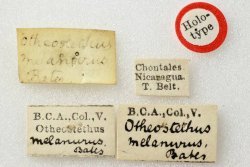 Otheostethus
melanurus
Bates
Holo-
type
Chontales,
Nicaragua.
T. Belt.
B.C.A.,Col.,V.
Otheostethus
melanurus,
Bates
B.C.A.,Col.,V.
Otheostethus
melanurus,
Bates